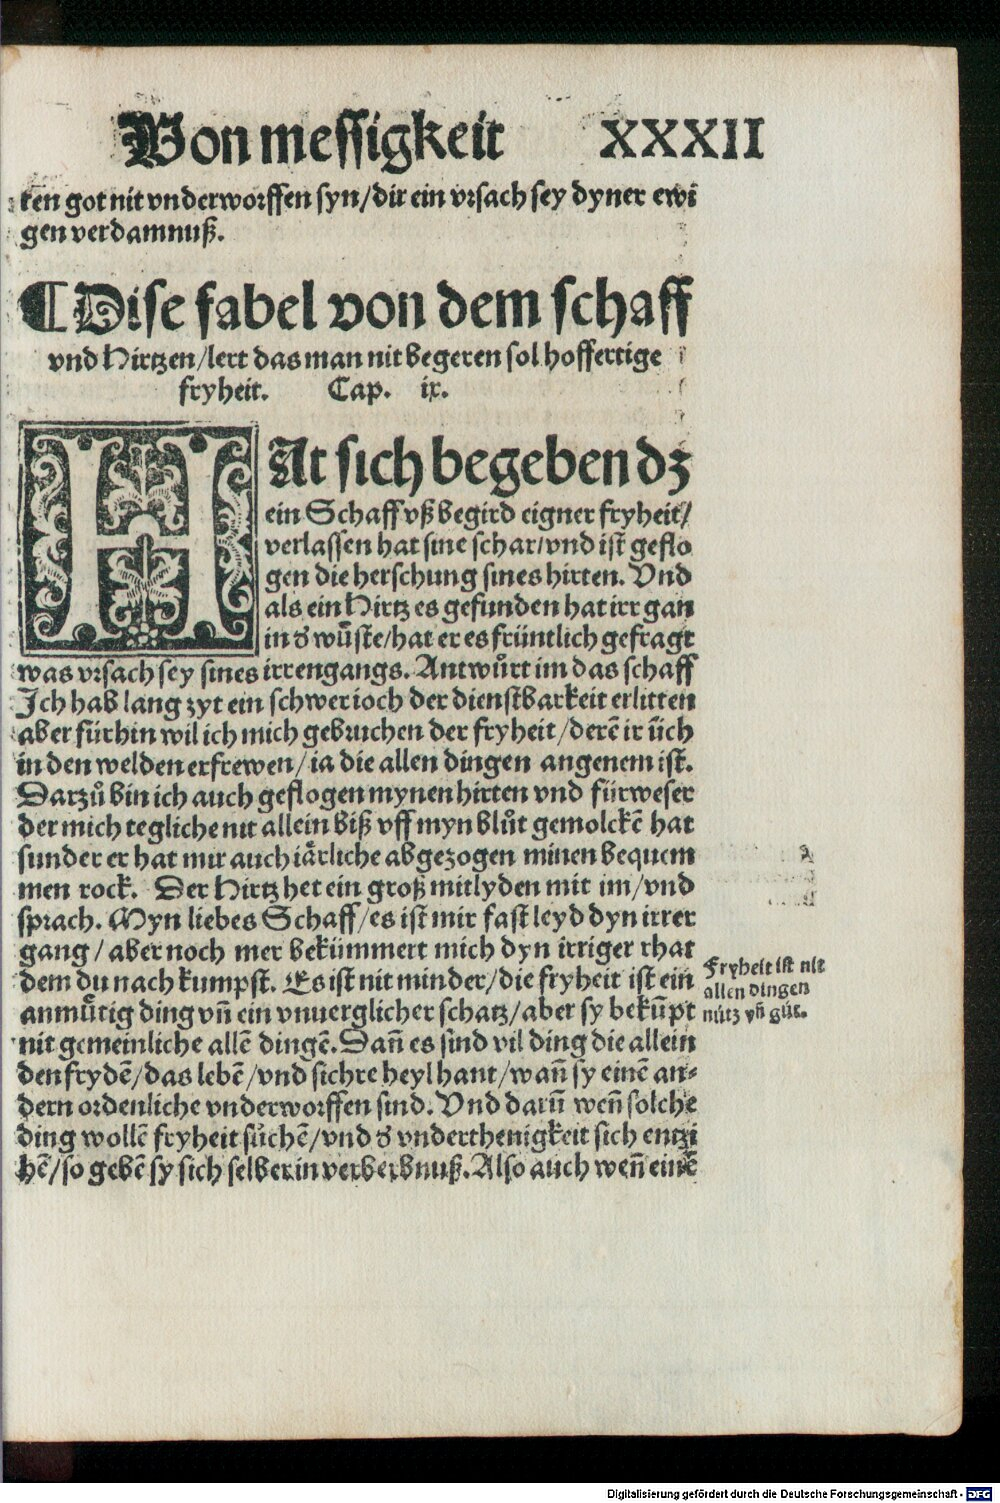 Von messigkeit XXXII
ken got nit vnderworffen syn/dir ein vrsach sey dyner ewi
gen verdamnuß.
¶ Dise fabel von dem schaff
vnd Hirtzen/lert das man nit begeren sol hoffertige
fryheit. Cap. ix.
HAt sich begeben dz
ein Schaff vß begird eigner fryheit/
verlassen hat sine schar/vnd ist geflo
gen die herschung sines hirten. Vnd
als ein Hirtz es gefunden hat irr gan
in d' wuͤste/hat er es früntlich gefragt
was vrsach sey sines irrengangs. Antwuͤrt im das schaff
Ich hab lang zyt ein schwer ioch der dienstbarkeit erlitten
aber fürhin wil ich mich gebruchen der fryheit/derē ir üch
in den welden erfrewen/ia die allen dingen angenem ist.
Darzuͦ bin ich auch geflogen mynen hirten vnd fürweser
der mich tegliche nit allein biß vff myn bluͦt gemolckē hat
sunder er hat mir auch iaͤrliche abgezogen minen bequem
men rock. Der Hirtz het ein groß mitlyden mit im/vnd
sprach. Myn liebes Schaff/es ist mir fast leyd dyn irrer
gang/aber noch mer bekümmert mich dyn irriger rhat
dem du nach kumpst. Es ist nit minder/die fryheit ist ein
anmuͤtig ding vn̄ ein vnuerglicher schatz/aber sy bekūpt
nit gemeinliche allē dingē. Dan̄ es sind vil ding die allein
den frydē/das lebē/vnd sichre heyl hant/wan̄ sy einē an-
dern ordenliche vnderworffen sind. Vnd darū wen̄ solche
ding wollē fryheit suͦchē/vnd d' vnderthenigkeit sich entzi
hē/so gebē sy sich selber in verderbnuß. Also auch wen̄ einē
Fryheit ist nit
allen dingen
nütz vn̄ guͦt.
Digitalisierung gefördert durch die Deutsche Forschungsgemeinschaft - DFG